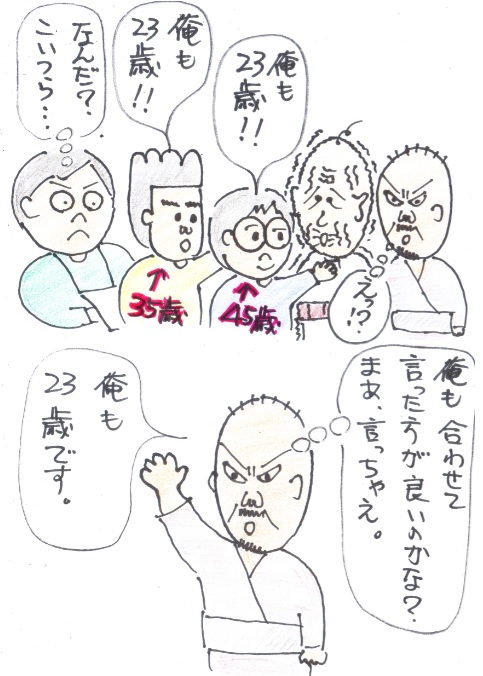 俺も
23歳!!
俺も
23歳!!
なんだ?
こいつら…
35歳
45歳
えっ!?
俺も 合わせて
言った方が良いのかな?
まあ、言っちゃえ。
俺も
23歳です。